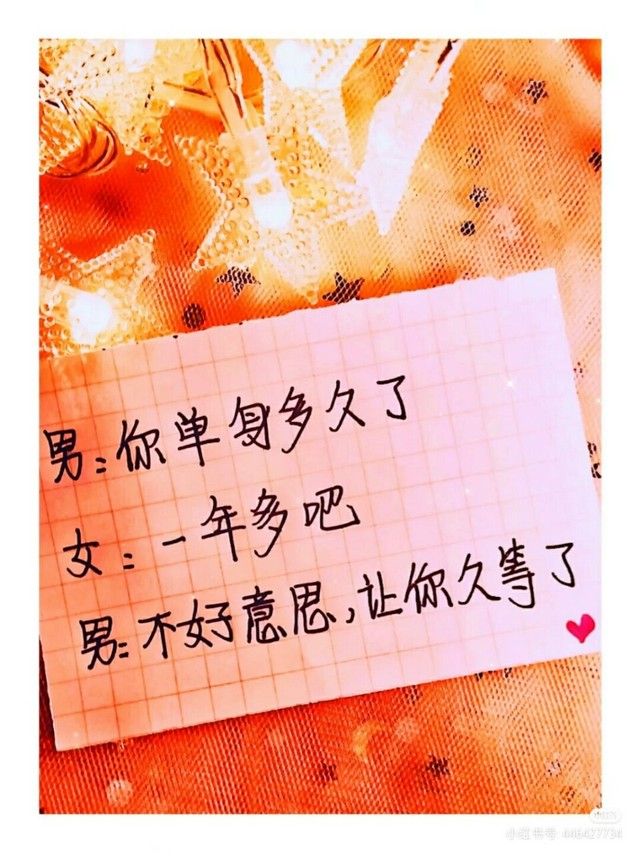 男:你单身多久了
女:一年多吧
男:不好意思,让你久等了
小红书号: 446427734